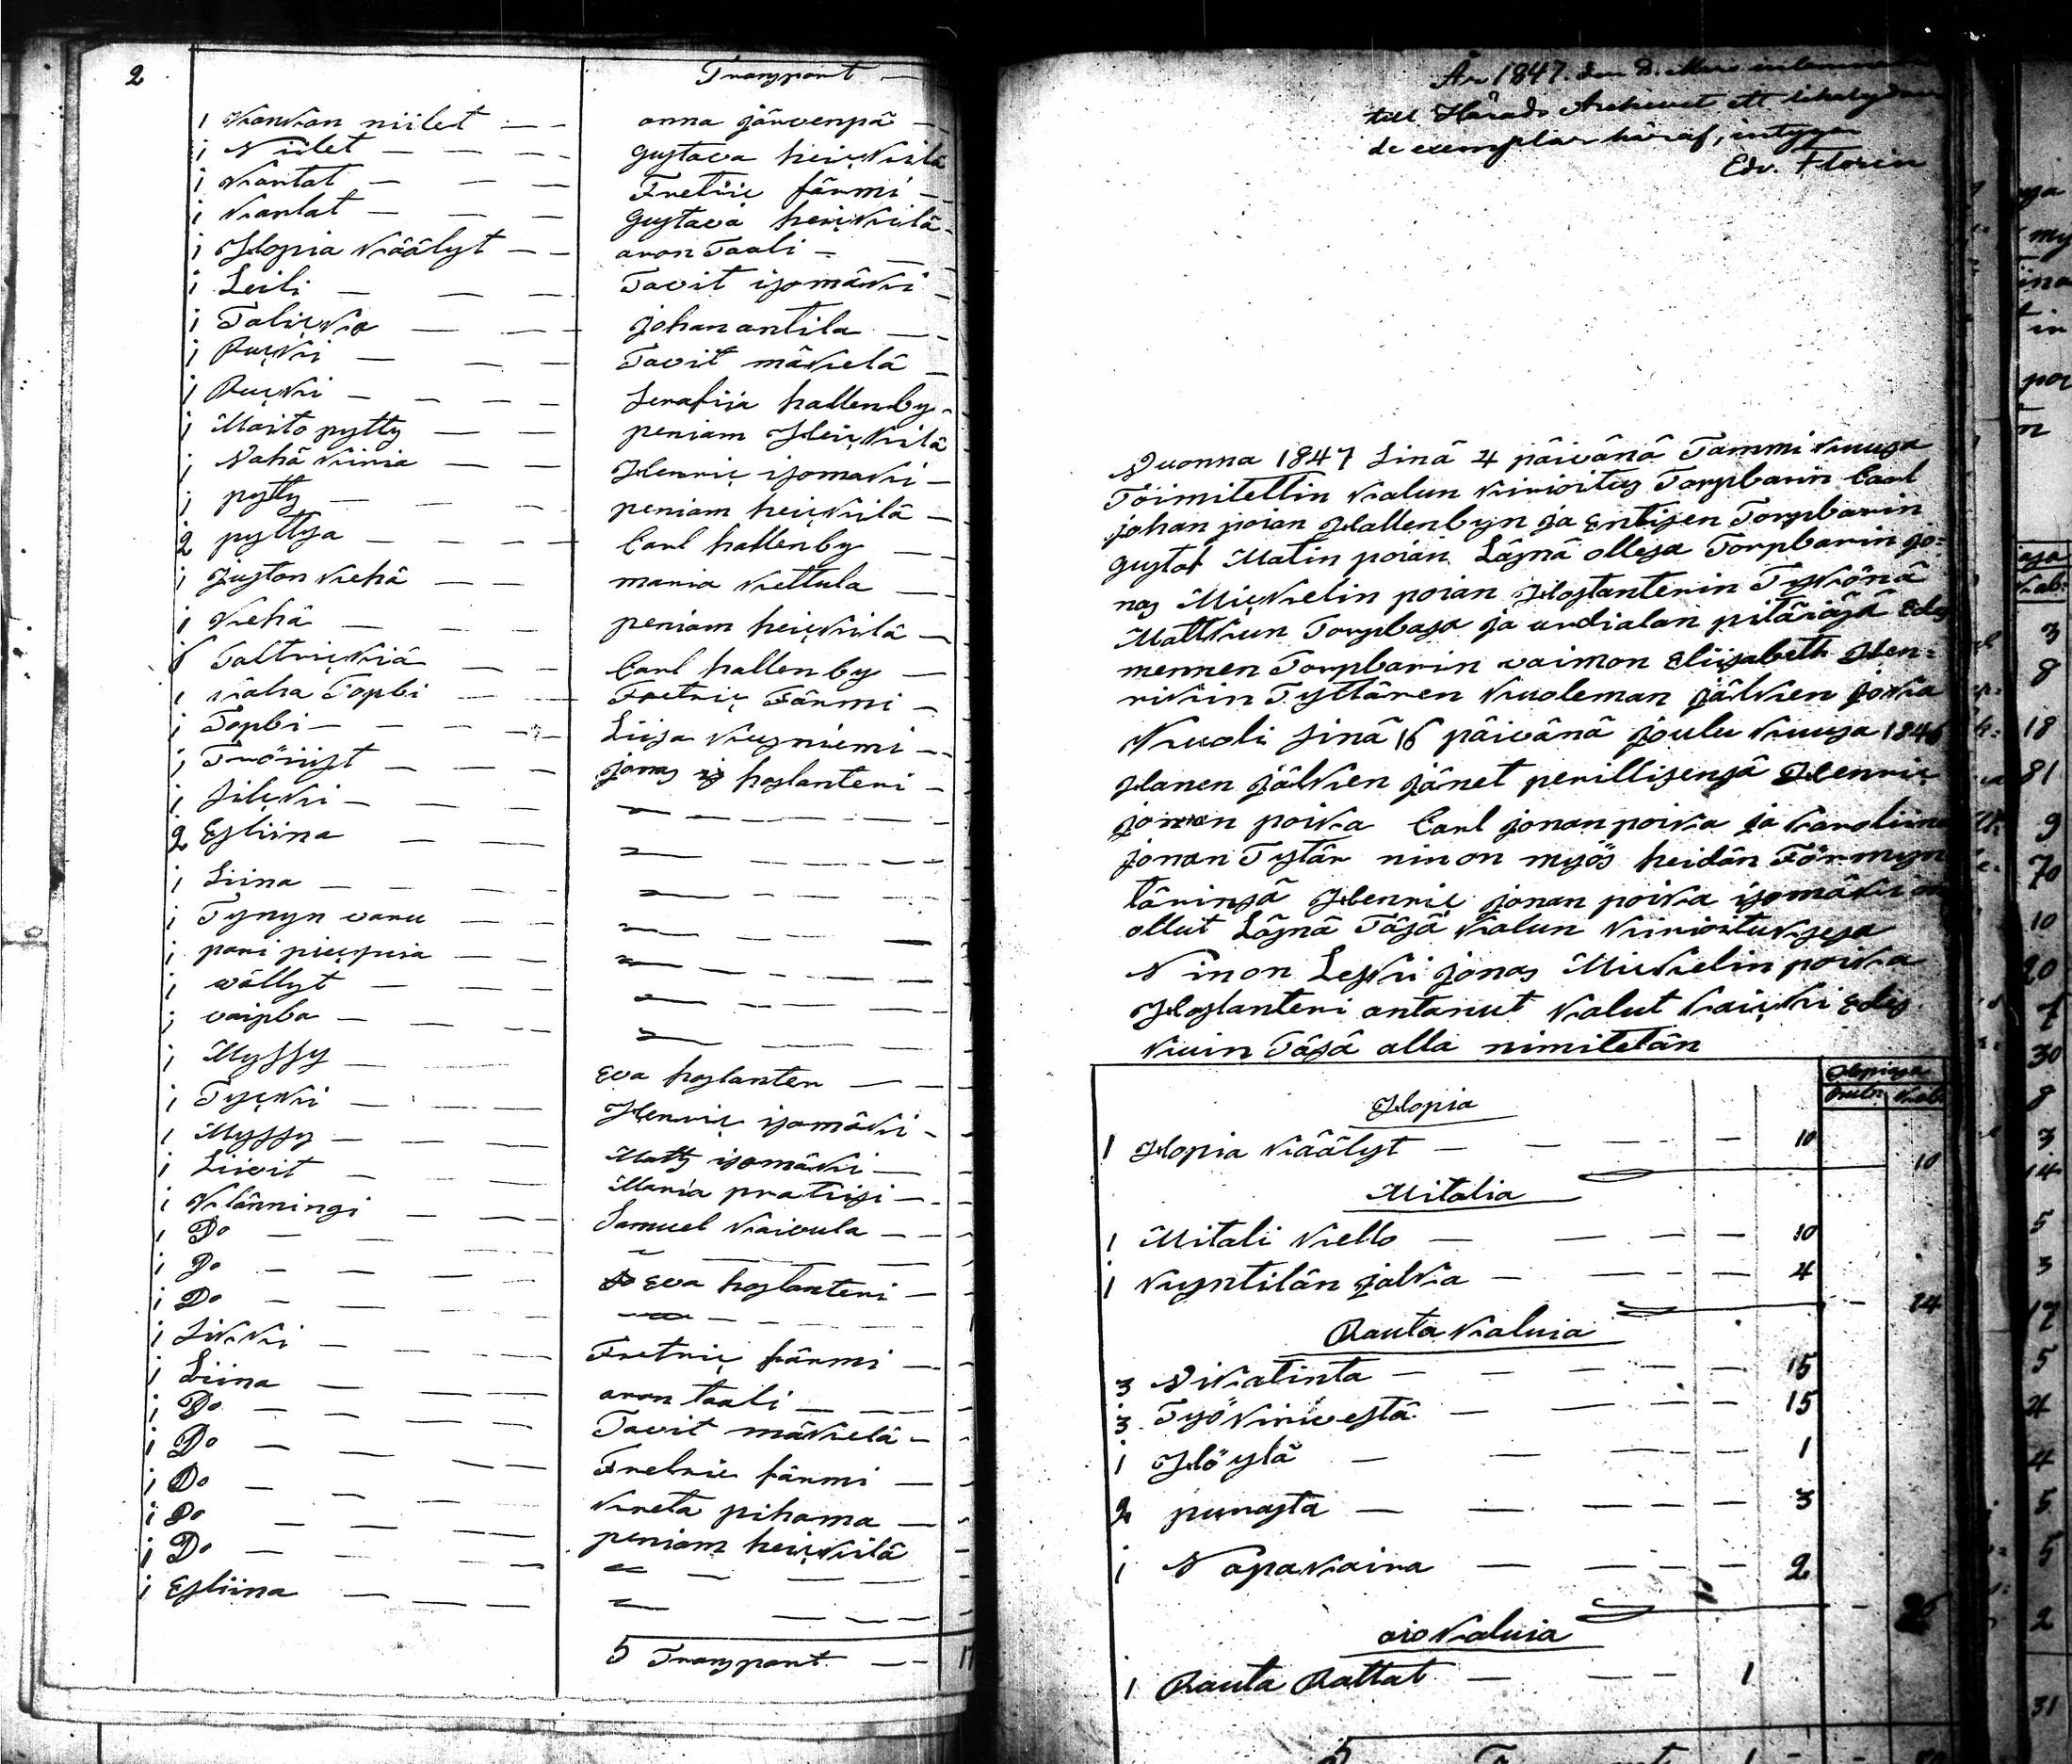 2
Transport —
1 Kankan niilet — — anna järvenpä —
1 Niilet — — — gustava heickilä
1 Kantat — — — Fretric färmi —
1 Kantat — — — gustava heickilä
1 Hopia Käälyt — — aron Taali —
1 Leili — — — Tavit isomäki
1 Talicko — — — johan antila —
1 Rucki — — — Tavit mäkelä
1 Rucki — — — Serafiia hallenby
1 Maito pytty — — peniam Heickilä
1 Vahä Kirnia — — Henric isomaki —
1 pytty — — — peniam heickilä —
2 pyttyä — — — Carl hallenby —
1 juston Kehä — — maria Kettula —
1 Kehä — — — peniam heickilä —
6 Taltrickiä — — Carl hallenby —
1 raha Topbi — — Fretric Färmi —
1 Topbi — — — Liisa Kusniemi —
1 Tröiiyt — — — jonas hoslanteri —
1 Silcki — — — —
2 Esliina — — —
1 Liina — — —
1 Tynyn varu — — —
1 pari piecsuia — — —
1 wällyt — — —
1 vaipba — — —
1 Myssy — — — Eva hoslanten — —
1 Tycki — — — Henric isomäki —
1 Myssy — — — Matts isomäki —
1 Liivit — — — Maria pratiisi —
1 Klänningi — — Samuel Kaivula —
1 Do — — —
1 Do — — — Eva hoslanteri —
1 Do — — —
1 Sikki — — — Fretric färmi —
1 Liina — — — aron taali — —
1 Do — — — Tavit mäkelä —
1 Do — — — Fretric färmi —
1 Do — — — Kreta pihama —
1 Do — — — peniam heickilä
1 Do — — —
1 Esliina — — —
5 Transport — —
År 1847 den 8. Mars inlemnadt
till Härads Archivet ett likalydan
de exemplar häraf, intygar
Edv. Florin
Vuonna 1847 Sinä 4 päivänä Tammi Kuusa
Toimitettin Kalun Kirioitus Torpbarin Carl
johan poian Hallenbyn ja Entisen Torpbarin
gustaf Matin poian Läsnä ollesa Torpbarin jo=
nas Mickelin poian Hoslanterin Tykönä
Mattkun Torpbasa ja urdialan pitäräsä Edes
mennen Torpbarin vaimon Eliisabeth Hen=
rikin Tyttären Kuoleman jälkien joka
Kuoli sinä 16 päivänä joulu Kuusa 1846
Hanen jälkien jänet perillisensä Henric
jonan poika Carl jonan poika ja Karoliina
jonan Tytär nin on myös heidän Förmyn
tärinsä Henric jonan poika isomäki on
ollut Läsnä Täsä Kalun Kirioituksesa
Nin on Leski jonas Mickelin poika
Hoslanteri antanut Kalut Kaicki Edes
Kuin Täsä alla nimitetän
Hopiasa
Rubl. Kob.
Hopia
1 Hopia Käälyt — — — 10
10
Mitalia
1 Mitali Kello — — — 10
1 Kyntilän jalka — — — 4
14
Rauta Kaluia
3 Vikatinta — — — 15
3 Työ Kirivestä — — — 15
1 Höylä — — — 1
2 purasta — — — 3
1 Napakaira — — — 2
36
aio Kaluia
1 Rauta Rattat — — — 1